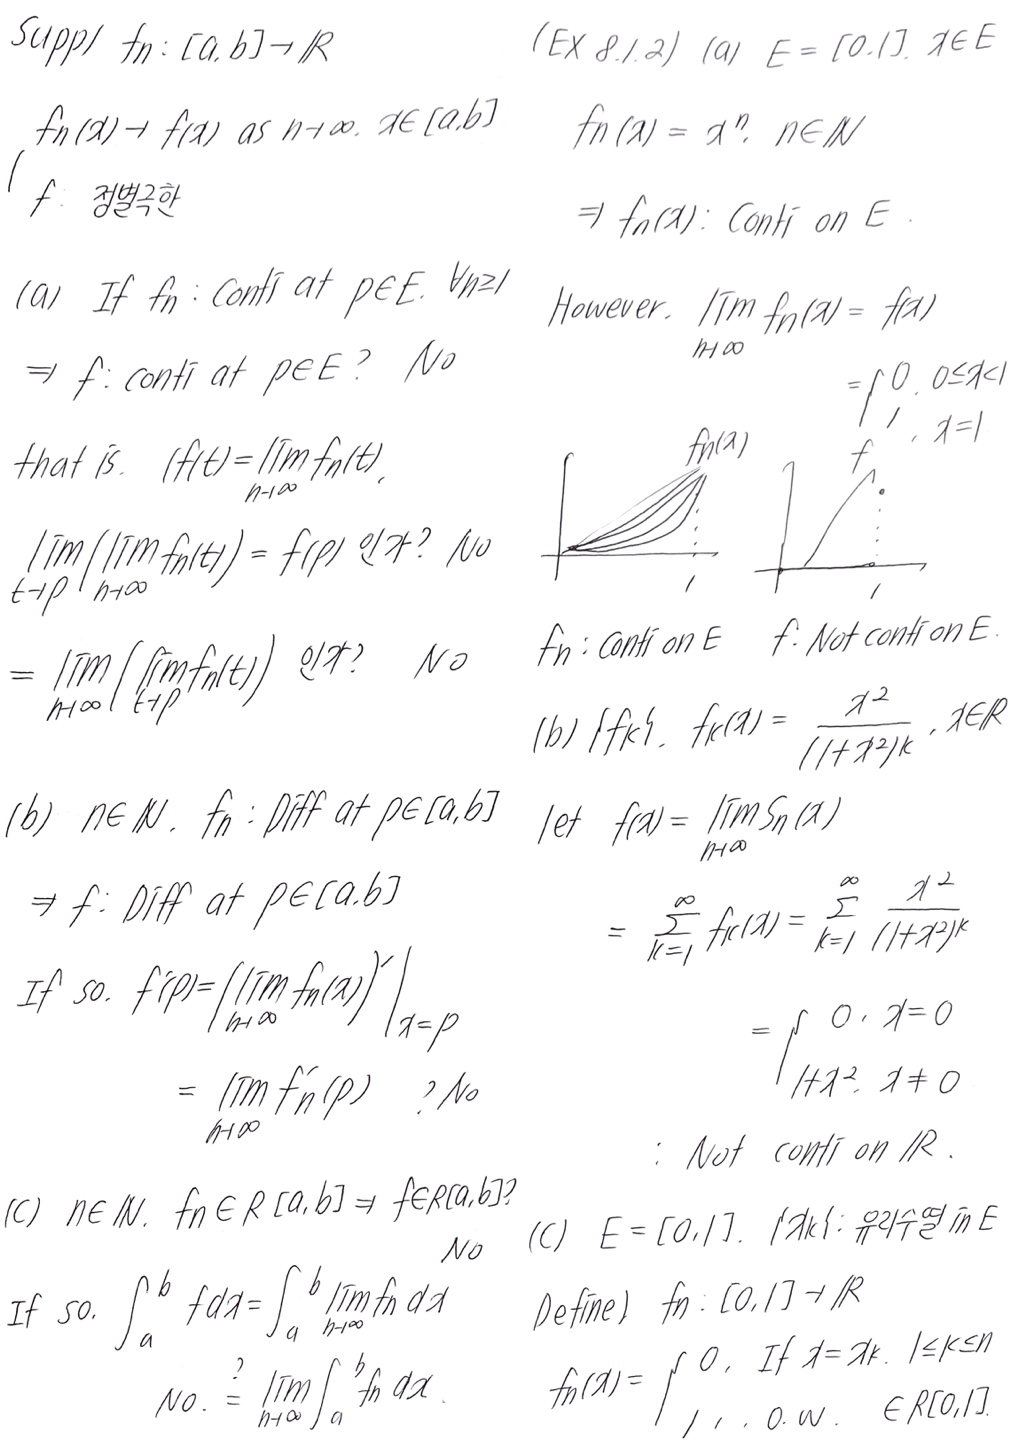 Supp) fn : [a,b] → ℝ
fn(x) → f(x) as n→∞. x∈[a,b]
( f : 점별극한
(a) If fn : Conti at p∈E. ∀n≥1
⇒ f : conti at p∈E? No
that is. (f(t) = lim n→∞ fn(t),
lim t→p (lim n→∞ fn(t)) = f(p) 인가? No
= lim n→∞ (lim t→p fn(t)) 인가? No
(b) n∈ℕ. fn : Diff at p∈[a,b]
⇒ f : Diff at p∈[a.b]
If so. f'(p) = (lim n→∞ fn(x))' | x=p
= lim n→∞ f'n(p) ? No
(c) n∈ℕ. fn∈R[a,b] ⇒ f∈R[a,b]?
No
If so. ∫_a^b f dx = ∫_a^b lim n→∞ fn dx
No. ?= lim n→∞ ∫_a^b fn dx.
(EX 8.1.2) (a) E = [0.1]. x∈E
fn(x) = x^n. n∈ℕ
⇒ fn(x) : Conti on E.
However. lim n→∞ fn(x) = f(x)
= { 0, 0≤x<1
1, x=1
fn(x) f
1 1
fn : Conti on E f : Not conti on E.
(b) {fk}. fk(x) = x²/(1+x²)^k, x∈ℝ
let f(x) = lim n→∞ Sn(x)
= ∑_{k=1}^∞ fk(x) = ∑_{k=1}^∞ x²/(1+x²)^k
= { 0, x=0
1+x². x≠0
: Not conti on ℝ.
(c) E = [0,1]. {xk} : 유리수열 in E
Define) fn : [0,1] → ℝ
fn(x) = { 0, If x=xk. 1≤k≤n
1, . O.W. ∈R[0,1].